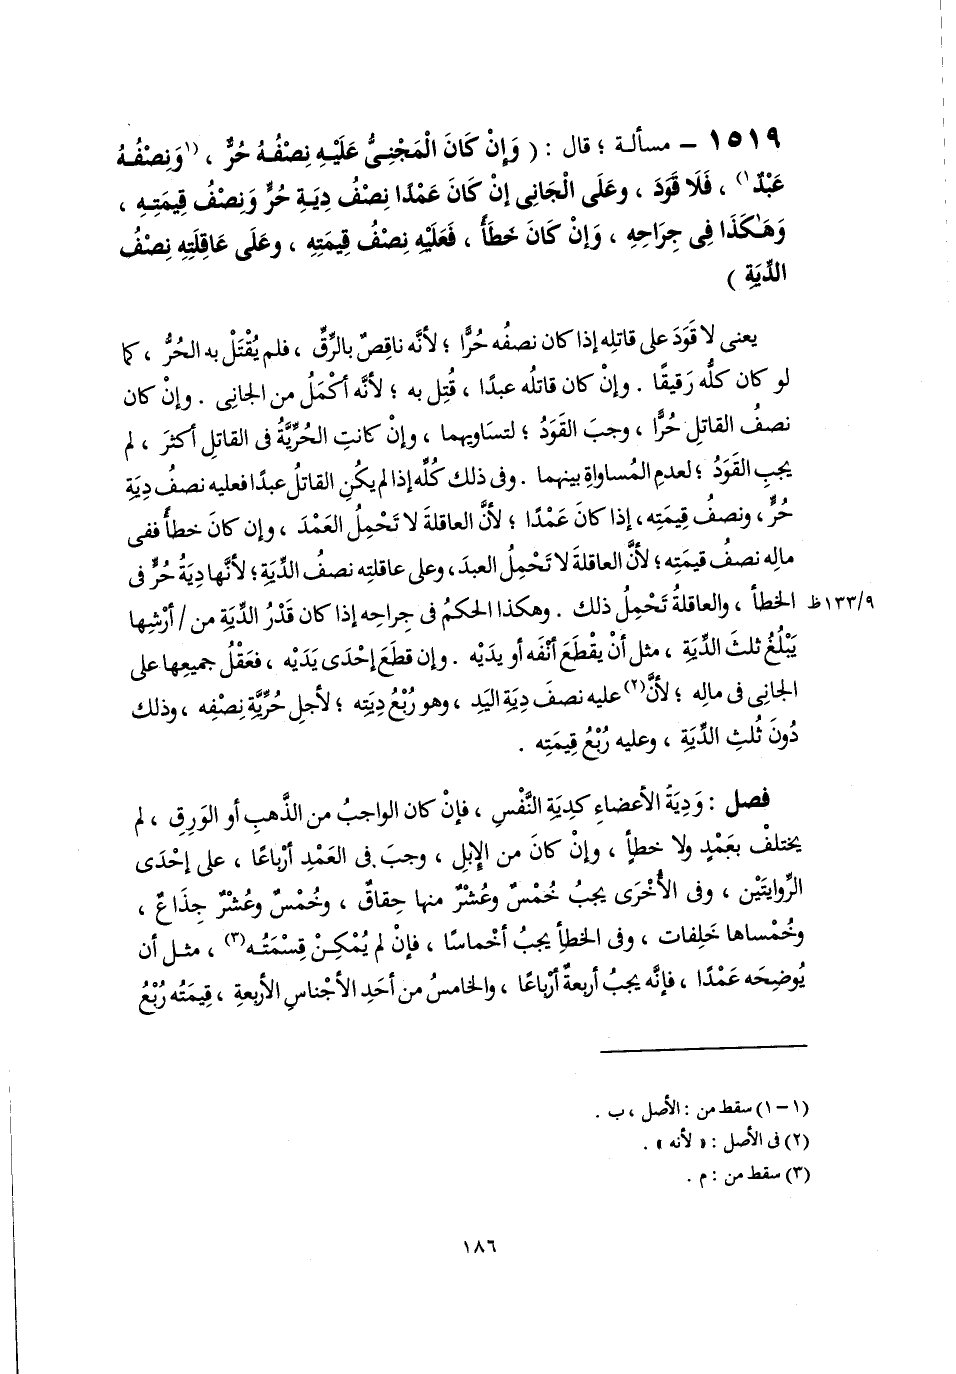 ١٥١٩ – مسألة ؛ قال : ( وَإِنْ كَانَ الْمَجْنِىُّ عَلَيْهِ نِصْفُهُ حُرٌّ ، (١وَنِصْفُهُ
عَبْدٌ١) ، فَلَا قَوَدَ ، وعَلَى الْجَانِى إنْ كَانَ عَمْدًا نِصْفُ دِيَةِ حُرٍّ وَنِصْفُ قِيمَتِهِ ،
وَهَـٰكَذَا فِى جِرَاحِهِ ، وَإنْ كَانَ خَطَأً ، فَعَلَيْهِ نِصْفُ قِيمَتِهِ ، وعَلَى عَاقِلَتِهِ نِصْفُ
الدِّيَةِ )
يعنى لا قَوَدَ على قاتلِه إذا كان نصفُه حُرًّا ؛ لأنَّه ناقِصٌ بالرِّقِّ ، فلم يُقْتَلْ به الحُرُّ ، كما
لو كان كلُّه رَقيقًا . وإنْ كان قاتلُه عبدًا ، قُتِل به ؛ لأنَّه أكْمَلُ من الجانِى . وإنْ كان
نصفُ القاتلِ حُرًّا ، وجبَ القَوَدُ ؛ لتسَاويهما ، وإنْ كانتِ الحُرِّيَّةُ فى القاتلِ أكثرَ ، لم
يجبِ القَوَدُ ؛ لعدمِ المُساواةِ بينهما . وفى ذلك كُلِّه إذا لم يكُنِ القاتلُ عبدًا فعليه نصفُ دِيَةِ
حُرٍّ ، ونصفُ قِيمَتِه ، إذا كانَ عَمْدًا ؛ لأنَّ العاقلةَ لا تَحْمِلُ العَمْدَ ، وإن كانَ خطأً ففى
مالِه نصفُ قيمَتِه ؛ لأنَّ العاقلةَ لا تَحْمِلُ العبدَ ، وعلى عاقلتِه نصفُ الدِّيَةِ ؛ لأنَّها دِيَةُ حُرٍّ فى
١٣٣/٩ظ الخطأ ، والعاقلةُ تَحْمِلُ ذلك . وهكذا الحكمُ فى جِراحِه إذا كان قَدْرُ الدِّيَةِ من / أرْشِها
يَبْلُغُ ثلثَ الدِّيَةِ ، مثل أنْ يقْطَعَ أنْفَه أو يدَيْه . وإن قطَعَ إحْدَى يَدَيْه ، فعَقْلُ جميعِها على
الجانِى فى مالِه ؛ لأنَّ(٢) عليه نصفَ دِيَةِ اليَدِ ، وهو رُبْعُ دِيَتِه ؛ لأجلِ حُرِّيَّةِ نِصْفِه ، وذلك
دُونَ ثُلثِ الدِّيَةِ ، وعليه رُبْعُ قِيمَتِه .
فصل : وَدِيَةُ الأعضاءِ كدِيَةِ النَّفْسِ ، فإنْ كان الواجبُ من الذَّهبِ أو الوَرِقِ ، لم
يختلفْ بعَمْدٍ ولا خطأٍ ، وإنْ كانَ من الإِبِلِ ، وجبَ فى العَمْدِ أرْباعًا ، على إحْدَى
الرِّوايتَيْن ، وفى الأُخْرَى يجبُ خُمْسٌ وعُشْرٌ منها حِقاقٌ ، وخُمْسٌ وعُشْرٌ جِذَاعٌ ،
وخُمْساها خَلِفات ، وفى الخطأِ يجبُ أخْماسًا ، فإنْ لم يُمْكِنْ قِسْمَتُه(٣) ، مثل أن
يُوضِحَه عَمْدًا ، فإنَّه يجبُ أربعةٌ أرْباعًا ، والخامسُ من أحَدِ الأجْناسِ الأربعةِ ، قِيمَتُه رُبْعُ
(١ – ١) سقط من : الأصل ، ب .
(٢) فى الأصل : « لأنه » .
(٣) سقط من : م .
١٨٦